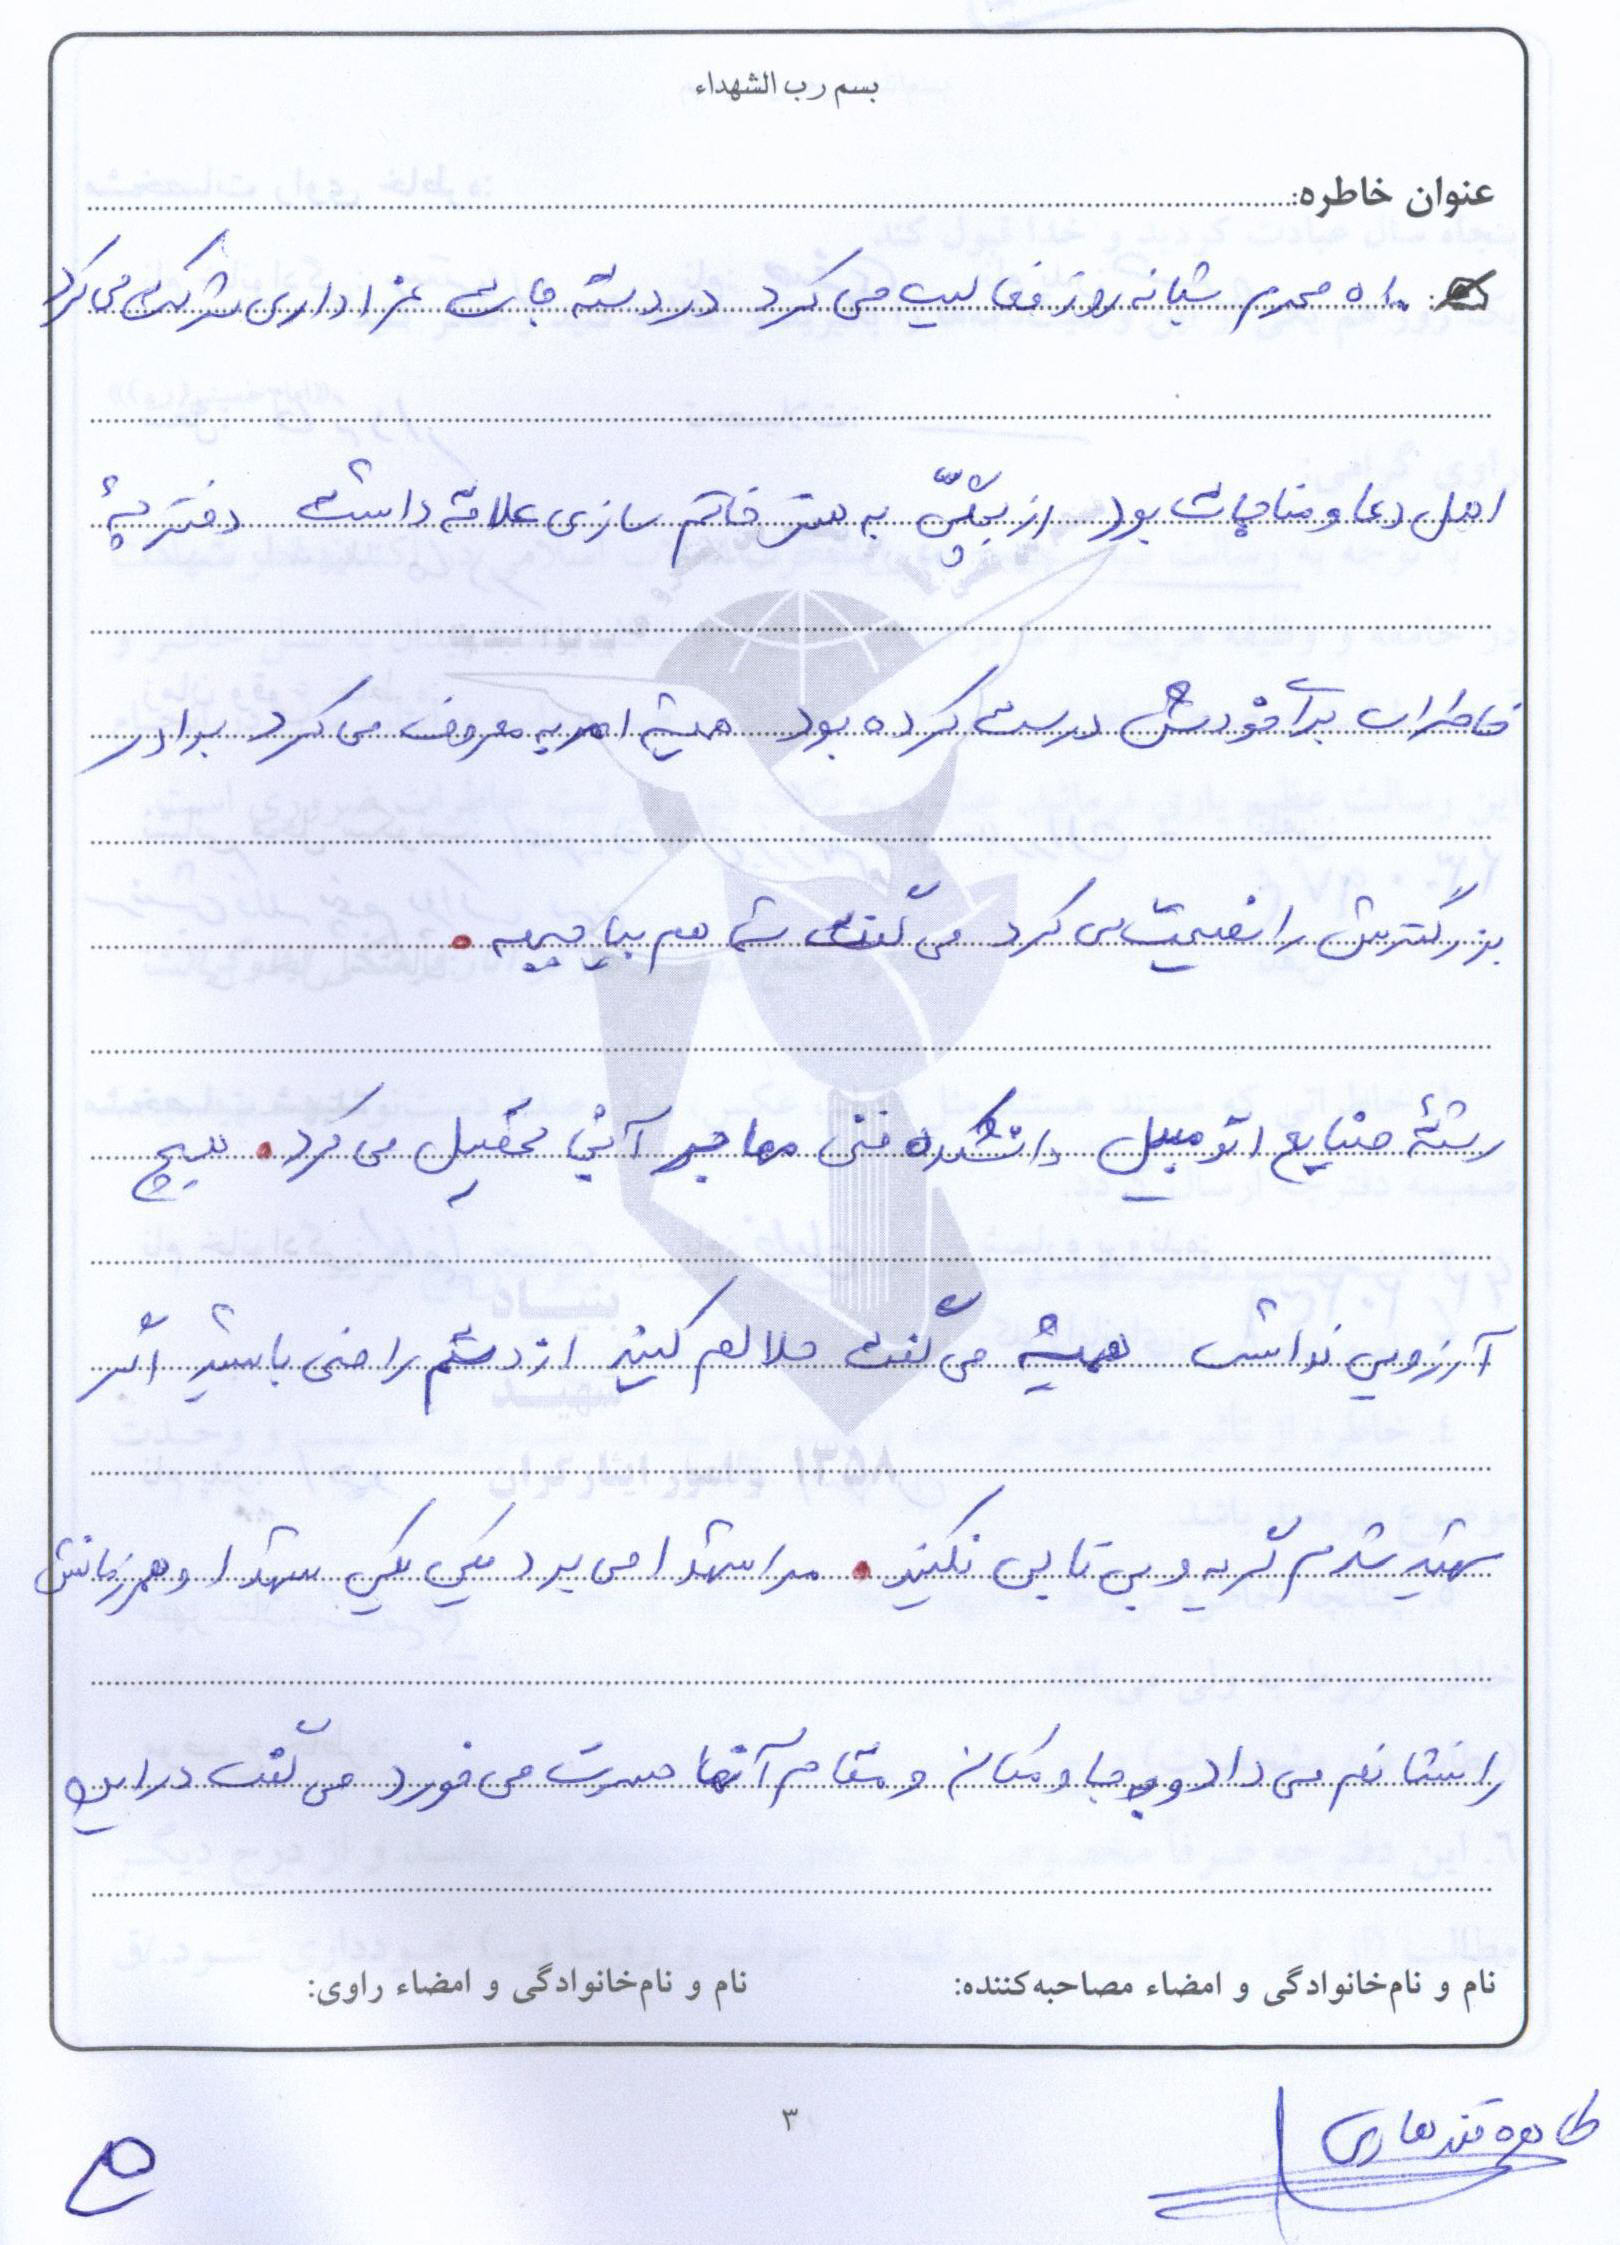 بسم رب الشهداء
عنوان خاطره:
ماه محرم شبانه روز فعالیت می کرد در دسته های عزاداری شرکت می کرد
اهل دعا و مناجات بود از بچگی به هنر خاتم سازی علاقه داشت دفترچه
خاطرات برای خودش درست کرده بود همیشه امر به معروف می کرد برادر
بزرگترش را نصیحت می کرد می گفت شما هم بیا جبهه .
رشته صنایع اتومبیل دانشکده فنی مهاجر آنجا تحصیل می کرد . هیچ
آرزویی نداشت همیشه می گفت حلالم کنید از دستم راضی باشید اگر
شهید شدم گریه و بی تابی نکنید . مرا شهدا می برد یکی یکی شهدا و همرزمانش
را نشانم می داد و به جا و مکان و مقام آنها حسرت می خورد می گفت در این
نام و نام‌خانوادگی و امضاء مصاحبه‌کننده: نام و نام‌خانوادگی و امضاء راوی:
۳
طاهره قندهاری